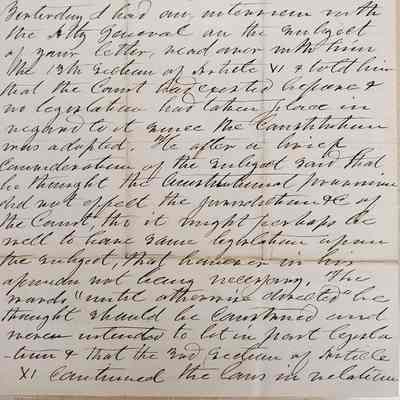 Yesterday I had an interview with
the Atty General on the subject
of your letter, read over with him
the 13th Section of Article XI & told him
that the Court had existed before &
no legislation had taken place in
regard to it since the Constitution
was adopted. He after a brief
consideration of the subject said that
he thought the Constitutional provision
did not affect the jurisdiction &c of
the Court, tho it might perhaps be
well to have some legislation upon
the subject, that however in his
opinion not being necessary. The
words "until otherwise directed" he
thought should be construed and
were intended to let in past legisla-
-tion & that the 3rd Section of Article
XI continued the laws in relation